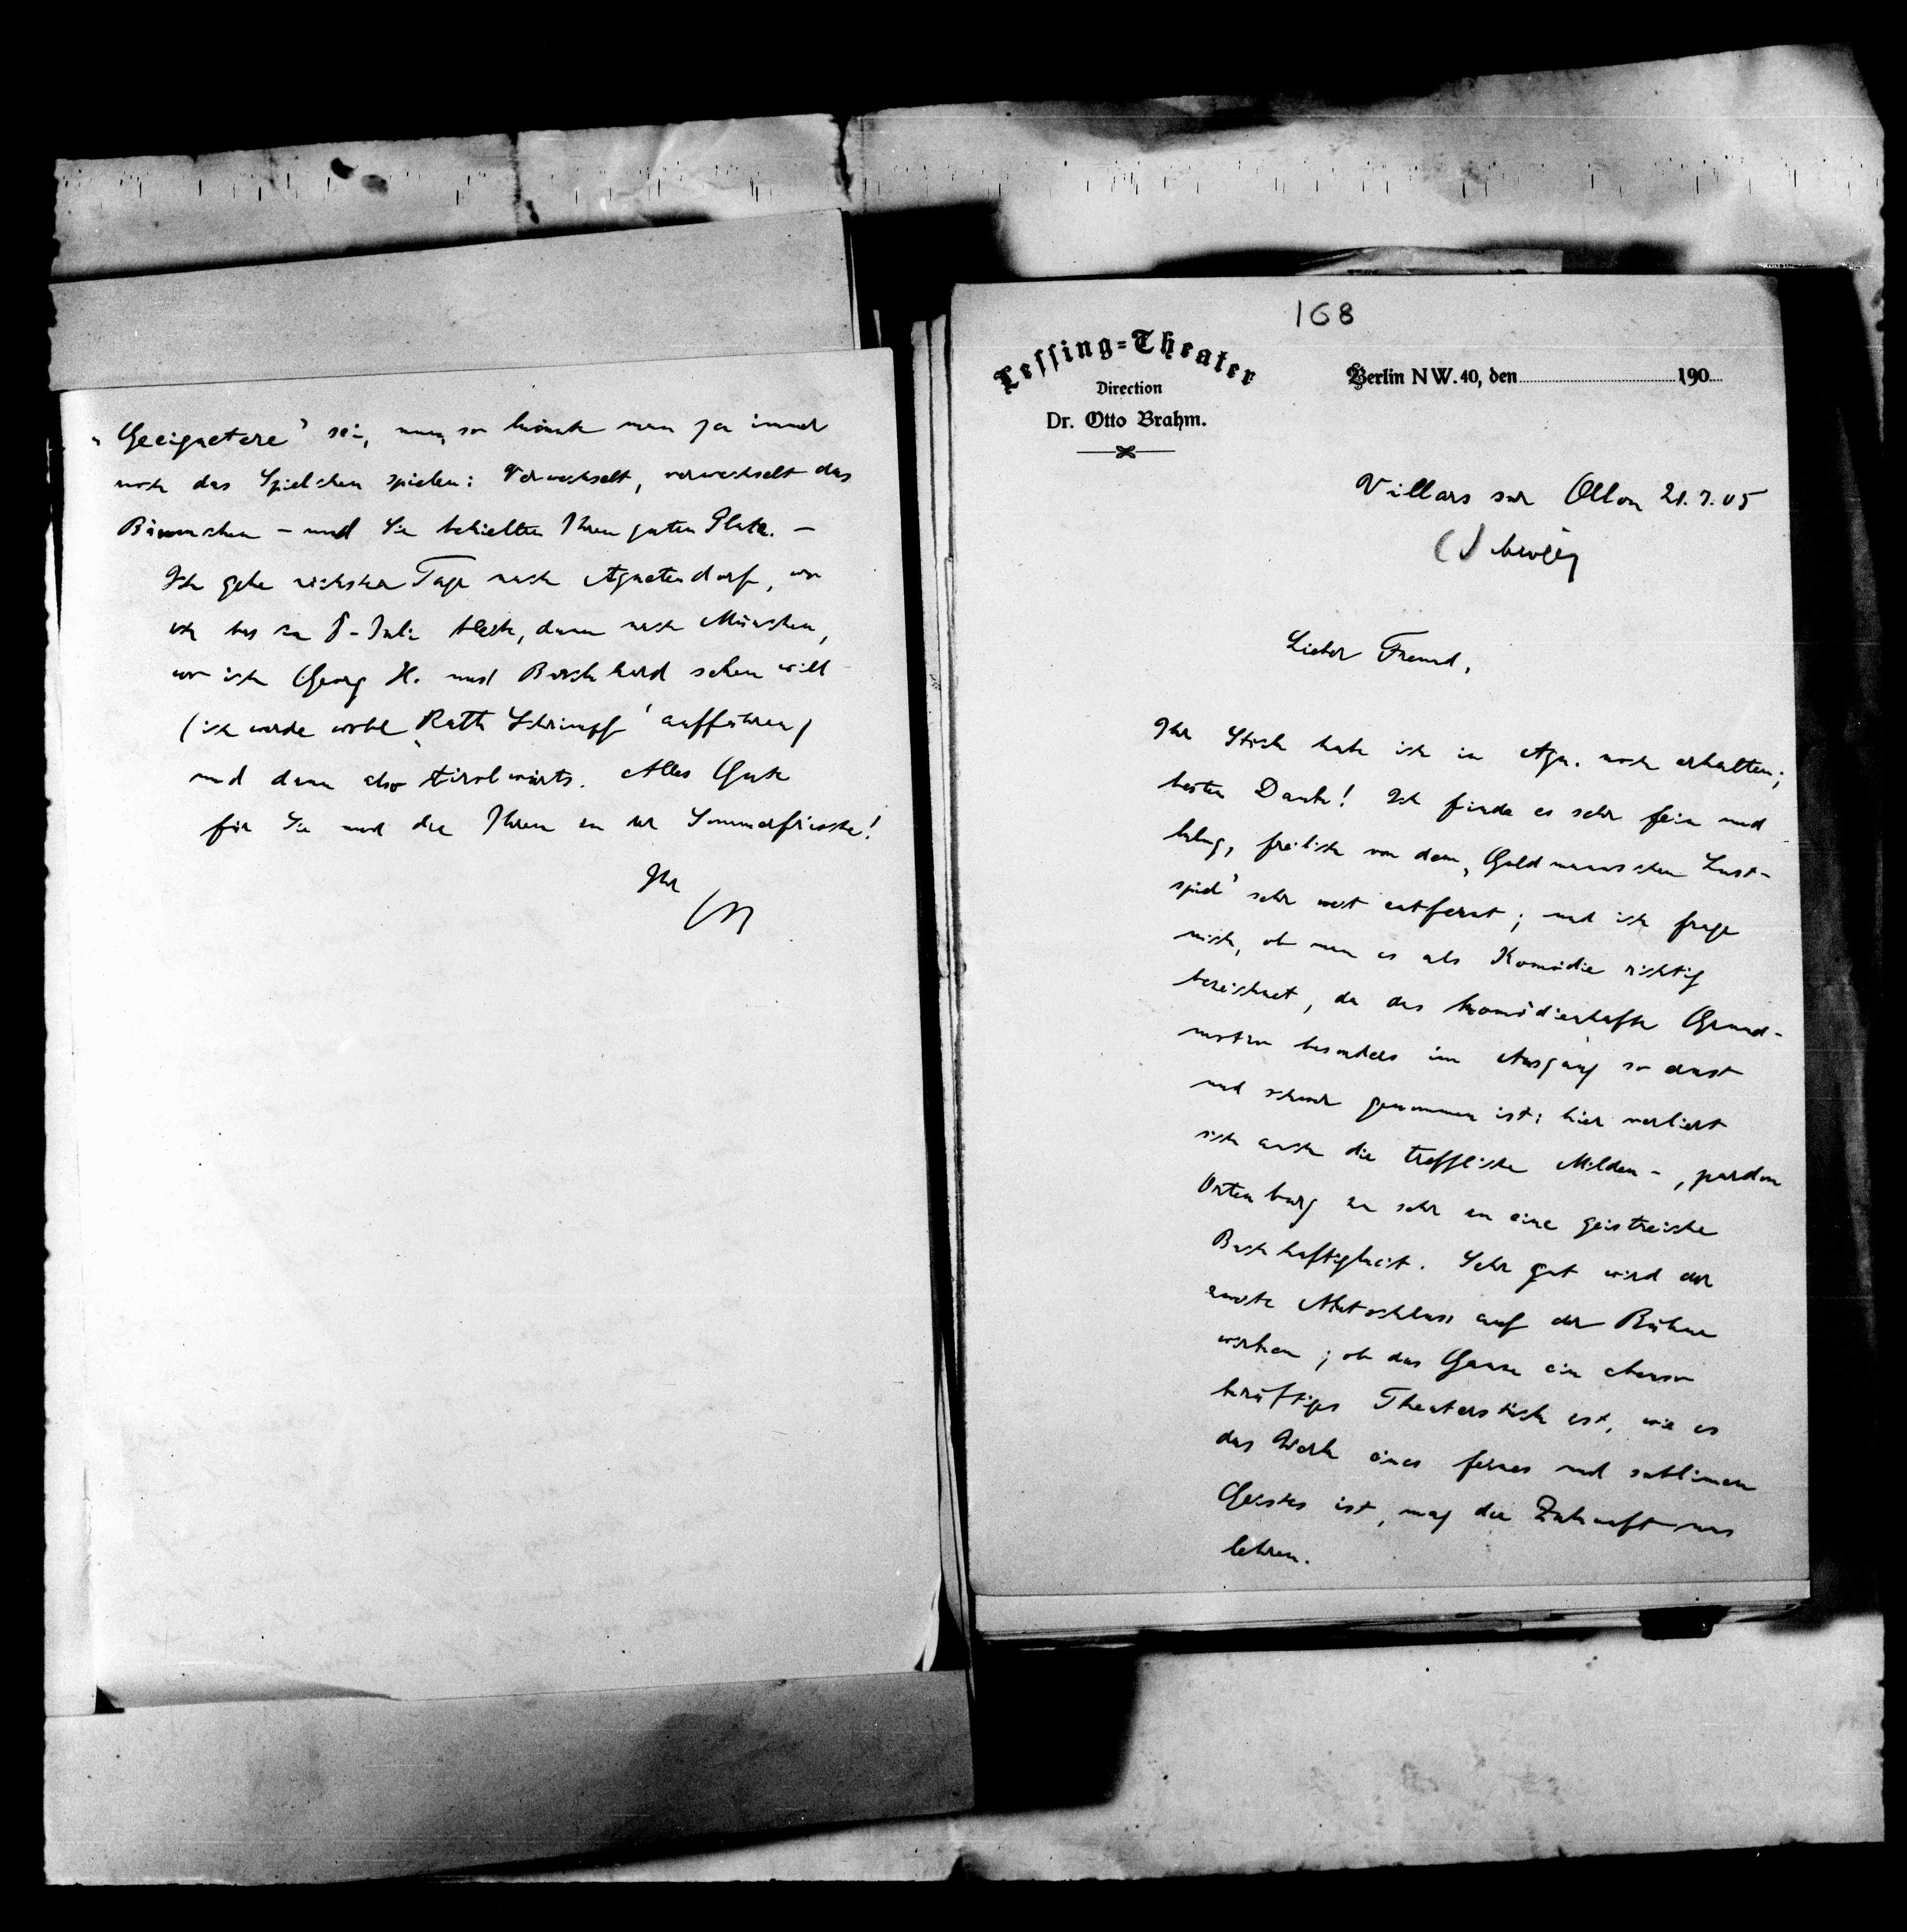 „Geeignetere' sei, nun, so könnte man ja immer
noch das Spielchen spielen: Verwechselt, verwechselt das
Bäumchen – und Sie behielten Ihren guten Platz. –
Ich gehe nächster Tage nach Agnetendorf, wo
ich bis zu 8. Juli bleibe, dann nach München,
wo ich Georg H. und Borchard sehen will
(ich werde wohl ‚Rath Schrimpf' aufführen)
und dann also tirolwärts. Alles Gute
für Sie und die Ihren in der Sommerfrische!
Ihr
168
Lessing-Theater
Direction
Dr. Otto Brahm.
Berlin NW. 40, den 190
Villars sur Ollon 21.7.05
(Schweiz)
Lieber Freund,
Ihr Stück habe ich in Agn. noch erhalten;
besten Dank! Ich finde es sehr fein und
klug, freilich von dem ‚Goldmannschen Lust-
spiel' sehr weit entfernt; und ich frage
mich, ob man es als Komödie richtig
bezeichnet, da das komödienhafte Grund-
motiv besonders im Ausgang so ernst
und schwer genommen ist; hier verliert
sich auch die treffliche Milden-, pardon
Ortenburg zu sehr in eine geistreiche
Boshaftigkeit. Sehr gut wird der
zweite Aktschluss auf der Bühne
wirken; ob das Ganze ein ebenso
kräftiges Theaterstück ist, wie es
das Werk eines feinen und sublimen
Geistes ist, mag die Zukunft uns
lehren.